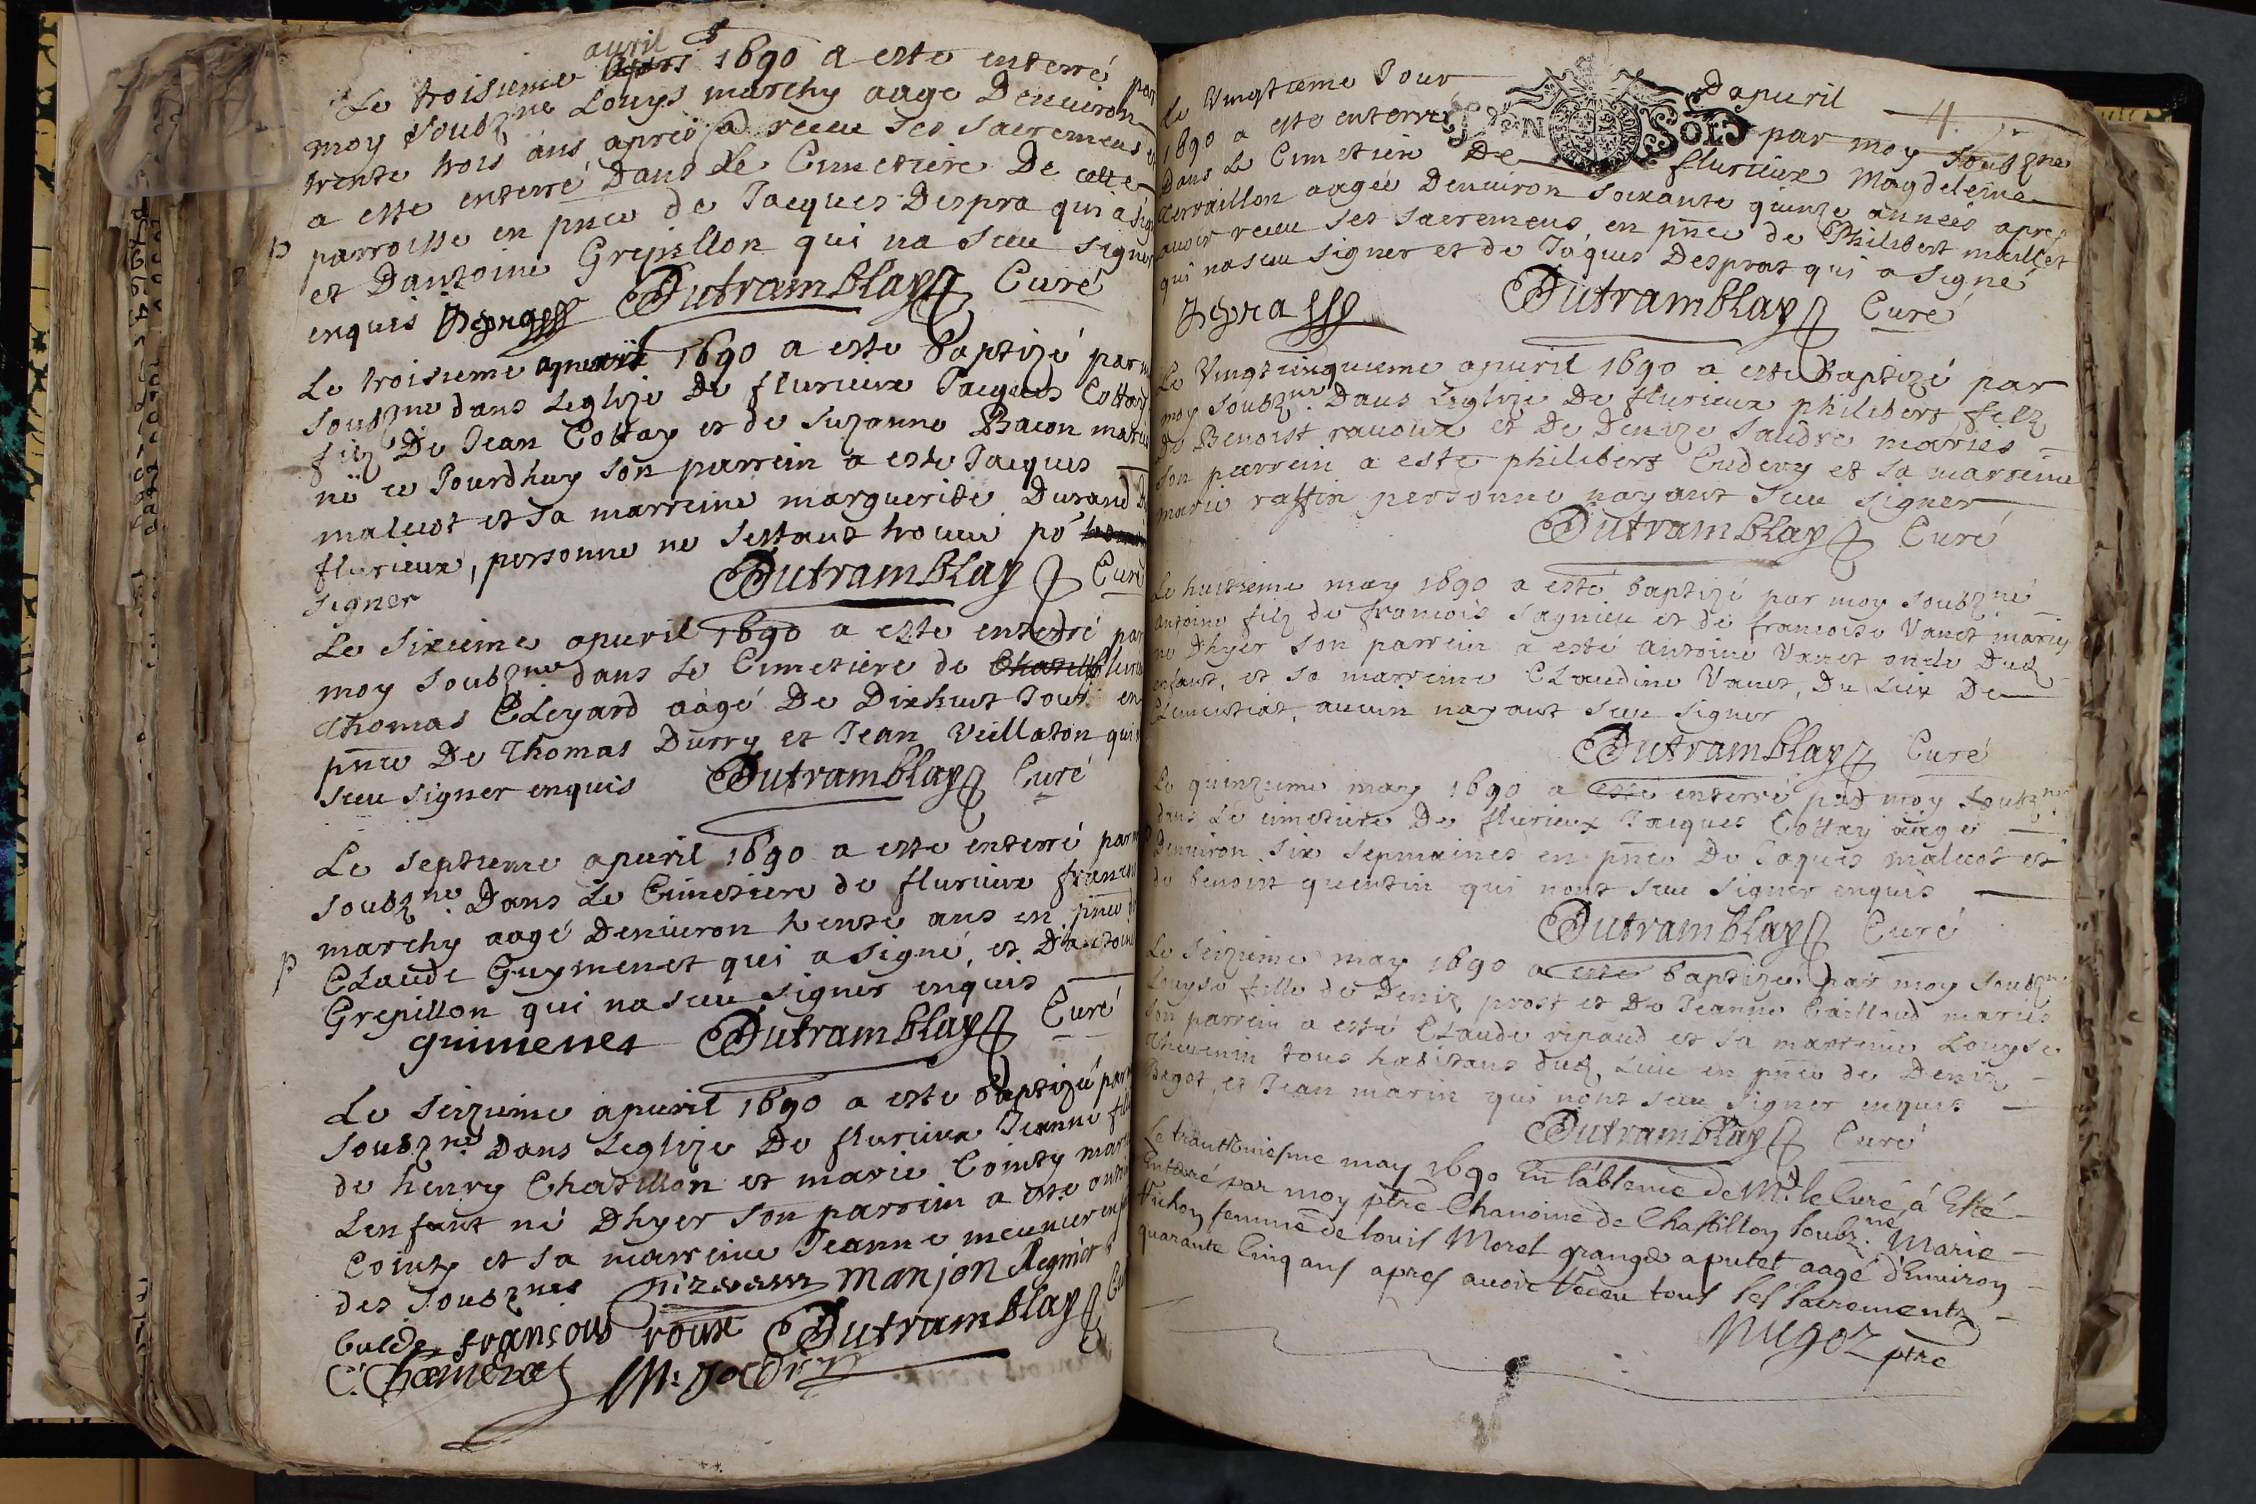 avril
Le troisieme 1690 a este enterré par
moy soubzne Louys marchy aage Denuiron
trente trois ans apres a receu ses sacremens
a este enterré Dans Le Cimetiere De cette
parroisse en pnce de Jacques Despra qui a sig
et Dantoine Grepillon qui na sceu signer
enquis Despra Dutramblay Curé
Le troisieme apuril 1690 a este baptizé par
soubzne dans Leglize De flurieux Jacques Cottay
filz De Jean Cottay et de Suzanne Bacon maries
né ce Jourdhuy son parrein a este Jacques
malecot et sa marreine marguerite Durand
flurieux, personne ne sestant trouué po
signer Dutramblay Curé
Le sixieme apuril 1690 a este enterré par
moy soubzne dans Le Cimetiere de flurieux
Thomas Cleyard aàgé De Dixhuit Jours en
pnce De Thomas Durry et Jean Veillaton qui
sceu signer enquis Dutramblay Curé
Le septieme apuril 1690 a este enterré par
soubzne Dans Le Cimetiere de flurieux francois
marchy aagé Denuiron trente ans en pnce de
Claude Guymenet qui a signé, et Dantoine
Grepillon qui na sceu signer enquis
guimenet Dutramblay Curé
Le seizieme apuril 1690 a este baptizé par
soubzne Dans Leglize De flurieux Jeanne fille
de henry Chatillon et marie Cointy maries
Lenfant né Dhyer son parrein a este
Cointy et sa marreine Jeanne meunier
des soubznes manjon Regnier
francois roux Dutramblay
C. Chameral
Le Vingtieme Jour Dapuril 4
1890 a este enterré par moy soubzne
GEN SOLS
Dans Le Cimetiere De flurieux Magdeleine
aagée Denuiron soixante quinze années apres
auoir receu ses sacremens, en pnce de Philibert maillet
qui na sceu signer et de Jaques Desprat qui a signé
Despra Dutramblay Curé
Le Vingtcinquieme apuril 1690 a este Baptizé par
moy soubzne Dans Leglize De flurieux philibert filz
De Benoist rauoux et De Denize Saudre maries
son parrein a este philibert Cudery et sa marreine
marie raffin personne nayant sceu signer
Dutramblay Curé
Le huitieme may 1690 a esté baptizé par moy soubzné
antoine filz de francois Sagnieu et de francoise Vauet maries
né Dhyer son parrein a esté antoine Vauet oncle Dud
enfant, et sa marreine Claudine Vauet, Du Lieu De
aucun nayant sceu signer
Dutramblay Curé
Le quinzieme may 1690 a este enterré par moy soubzne
dans Le cimetiere De flurieux Jacques Cottay aagé
Denuiron six sepmaines en pnce De Jaques malecot et
de benoist quentin qui nont sceu signer enquis
Dutramblay Curé
Le seizieme may 1690 a este baptizée par moy soubzne
Louyse fille de Deniz prost et De Jeanne Cailloud maries
son parrein a esté Claude ripaud et sa marreine Louyse
Theuenin tous habitans dud Lieu en pnce de Deniz
Bagot, et Jean marin qui nont sceu signer enquis
Dutramblay Curé
Le may 1690 En labsence de Mr le Curé à Esté
Enterré par moy ptre Chanoine de Chastillon soubzné Marie
femme de louis Morel granger a putet aagé d'Enuiron
quarante Cinq ans apres auoir receu tous les sacrements
Nugoz ptre